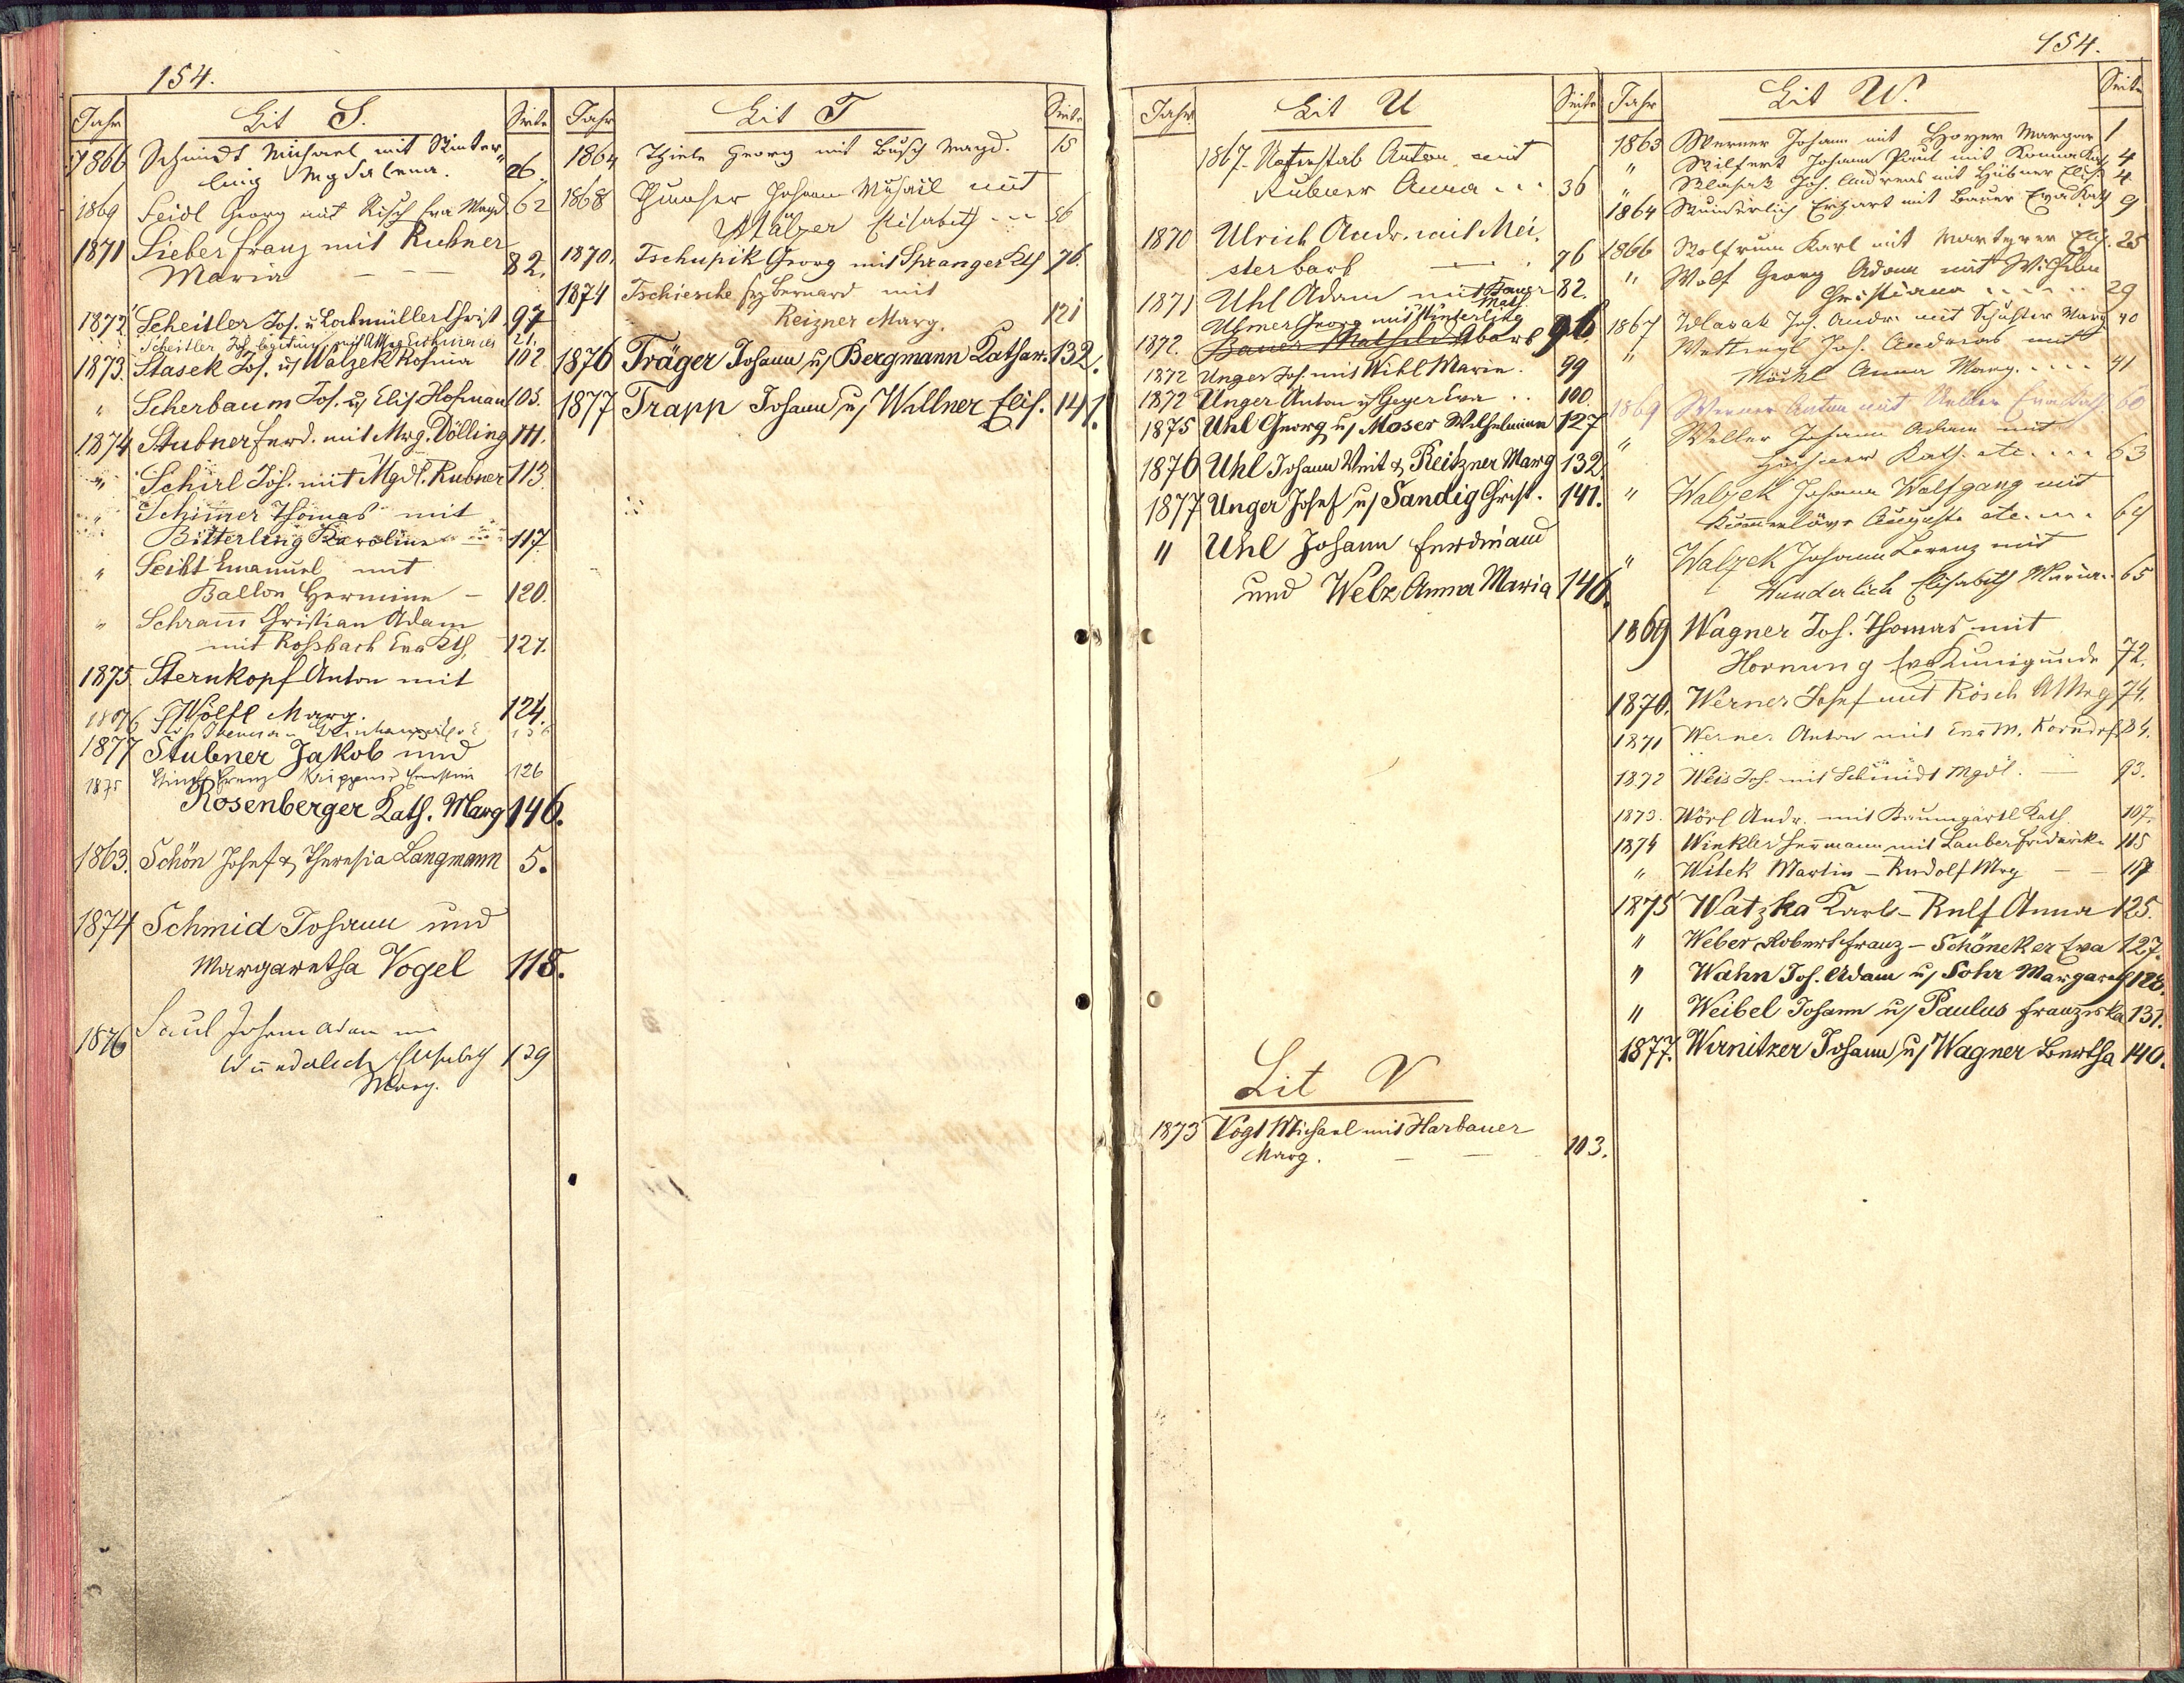 154.
Jahr Lit S. Seite
1866 Schmidt Michael mit Künter„
ling Mgdalena. 26.
1869 Seidl Georg mit Risch Eva Magd. 62
1871 Sieber Franz mit Rubner
Maria — — 82.
1872 Scheitler Jos. u. Lochmüller Christ. 97
Scheitler Jos. 21.
1873. Stasek Jos. u. Walzek Rosina 102
„ Scherbaum Jos. u. Elis. Hofman 105.
1874 Stubner Ferd. mit Mrg. Dölling 111.
„ Schirl Joh. mit Mgdl. Rubner 113.
„ Schimer Thomas mit
Bitterling Karoline 117.
„ Seiht Emanuel mit
Ballon Hermine — 120.
„ Schram̄ Christian Adam
mit Rossbach Eva Kth. 121.
1875. Sternkopf Anton mit
Wölfl Marg. 124.
1876
1877 Stubner Jakob und
1875 Franz 126
Rosenberger Kath. Marg 146.
1863. Schön Josef & Theresia Langmann 5.
1874 Schmid Johann und
Margaretha Vogel 118.
1876 Saul Johann Adam
Wunderlich Elisabeth 139
Marg.
Jahr Lit T Seite
1864 Thiele Georg mit Busch Magd. 15
1868 Johann Michael mit
Mälzer Elisabeth - - 56
1870. Tschupik Georg mit Spranger Kth. 76.
1874 Tschiesche Bernard mit
Reizner Marg. 121
1876 Träger Johann u. Bergmann Kathar. 132.
1877 Trapp Johann u. Wallner Elis. 141.
154.
Jahr Lit U Seite
1867. Anton mit
Rubner Anna . . . 36
1870 Ulrich Andr. mit Mei.
ster Barb — . 76
1871 Uhl Adam mit 82.
Math.
Ulmer Georg mit Künterling
1872. Barb 96.
1872 Unger Jos. mit Wihl Maria. 99
1872 Unger Anton u. Geyer Eva . . 100.
1875 Uhl Georg u. Moser Wilhelmine 127
1876 Uhl Johann Veit & Reitzner Marg 132.
1877 Unger Josef u. Sandig Christ. 141.
„ Uhl Johann Ferdinand
und Welz Anna Maria 146.
Lit V
1873 Vogt Michael mit Harbauer
Marg. — — 103.
Jahr Lit W. Seite
1863 Werner Johann mit Hoyer Margar 1
„ Wilfert Johann Paul mit Kath. 4
„ Wlasak Jos. Andreas mit Hübner Elis. 4
1864 Wunderlich Erhart mit Bauer Eva Kath 9
1866 Wolfrum Karl mit Elis. 25
„ Wolf Georg Adam mit
Christiana . . . . . 29
1867 Wlasak Jos. Andr. mit Schuster Marg 40
„ Jos. Andreas mit
Möckl Anna Marg. . . . . 41
1869 Werner Anton mit Eva Kath. 60
„ Weller Johann Adam mit
Kath. etc. . . . 63
„ Walzek Johann Wolfgang mit
Auguste etc. . . . 64
„ Walzek Johann Lorenz mit
Wunderlich Elisabeth Maria. 65
1869 Wagner Joh. Thomas mit
Hornung Eva Kunigunde 72.
1870. Werner Josef mit Rösch AMrg 74.
1871 Werner Anton mit Eva M. Korndörf. 84.
1872 Weis Jos. mit Schmidt Mgdl. — 93.
1873. Wörl Andr. mit Baumgärtl Kath. 107.
1874 Winkler Hermann mit Lauber Friderike 115
„ Witek Martin — Rudolf Mrg — — 117
1875 Watzka Karl — Rulf Anna 125.
„ Weber Robert Franz — Schöneker Eva 127.
„ Wahn Jos. Adam u. Sohr Margareth 128.
„ Weibel Johann u. Paulus Franziska 131.
1877. Wirnitzer Johann u. Wagner Bertha 140.